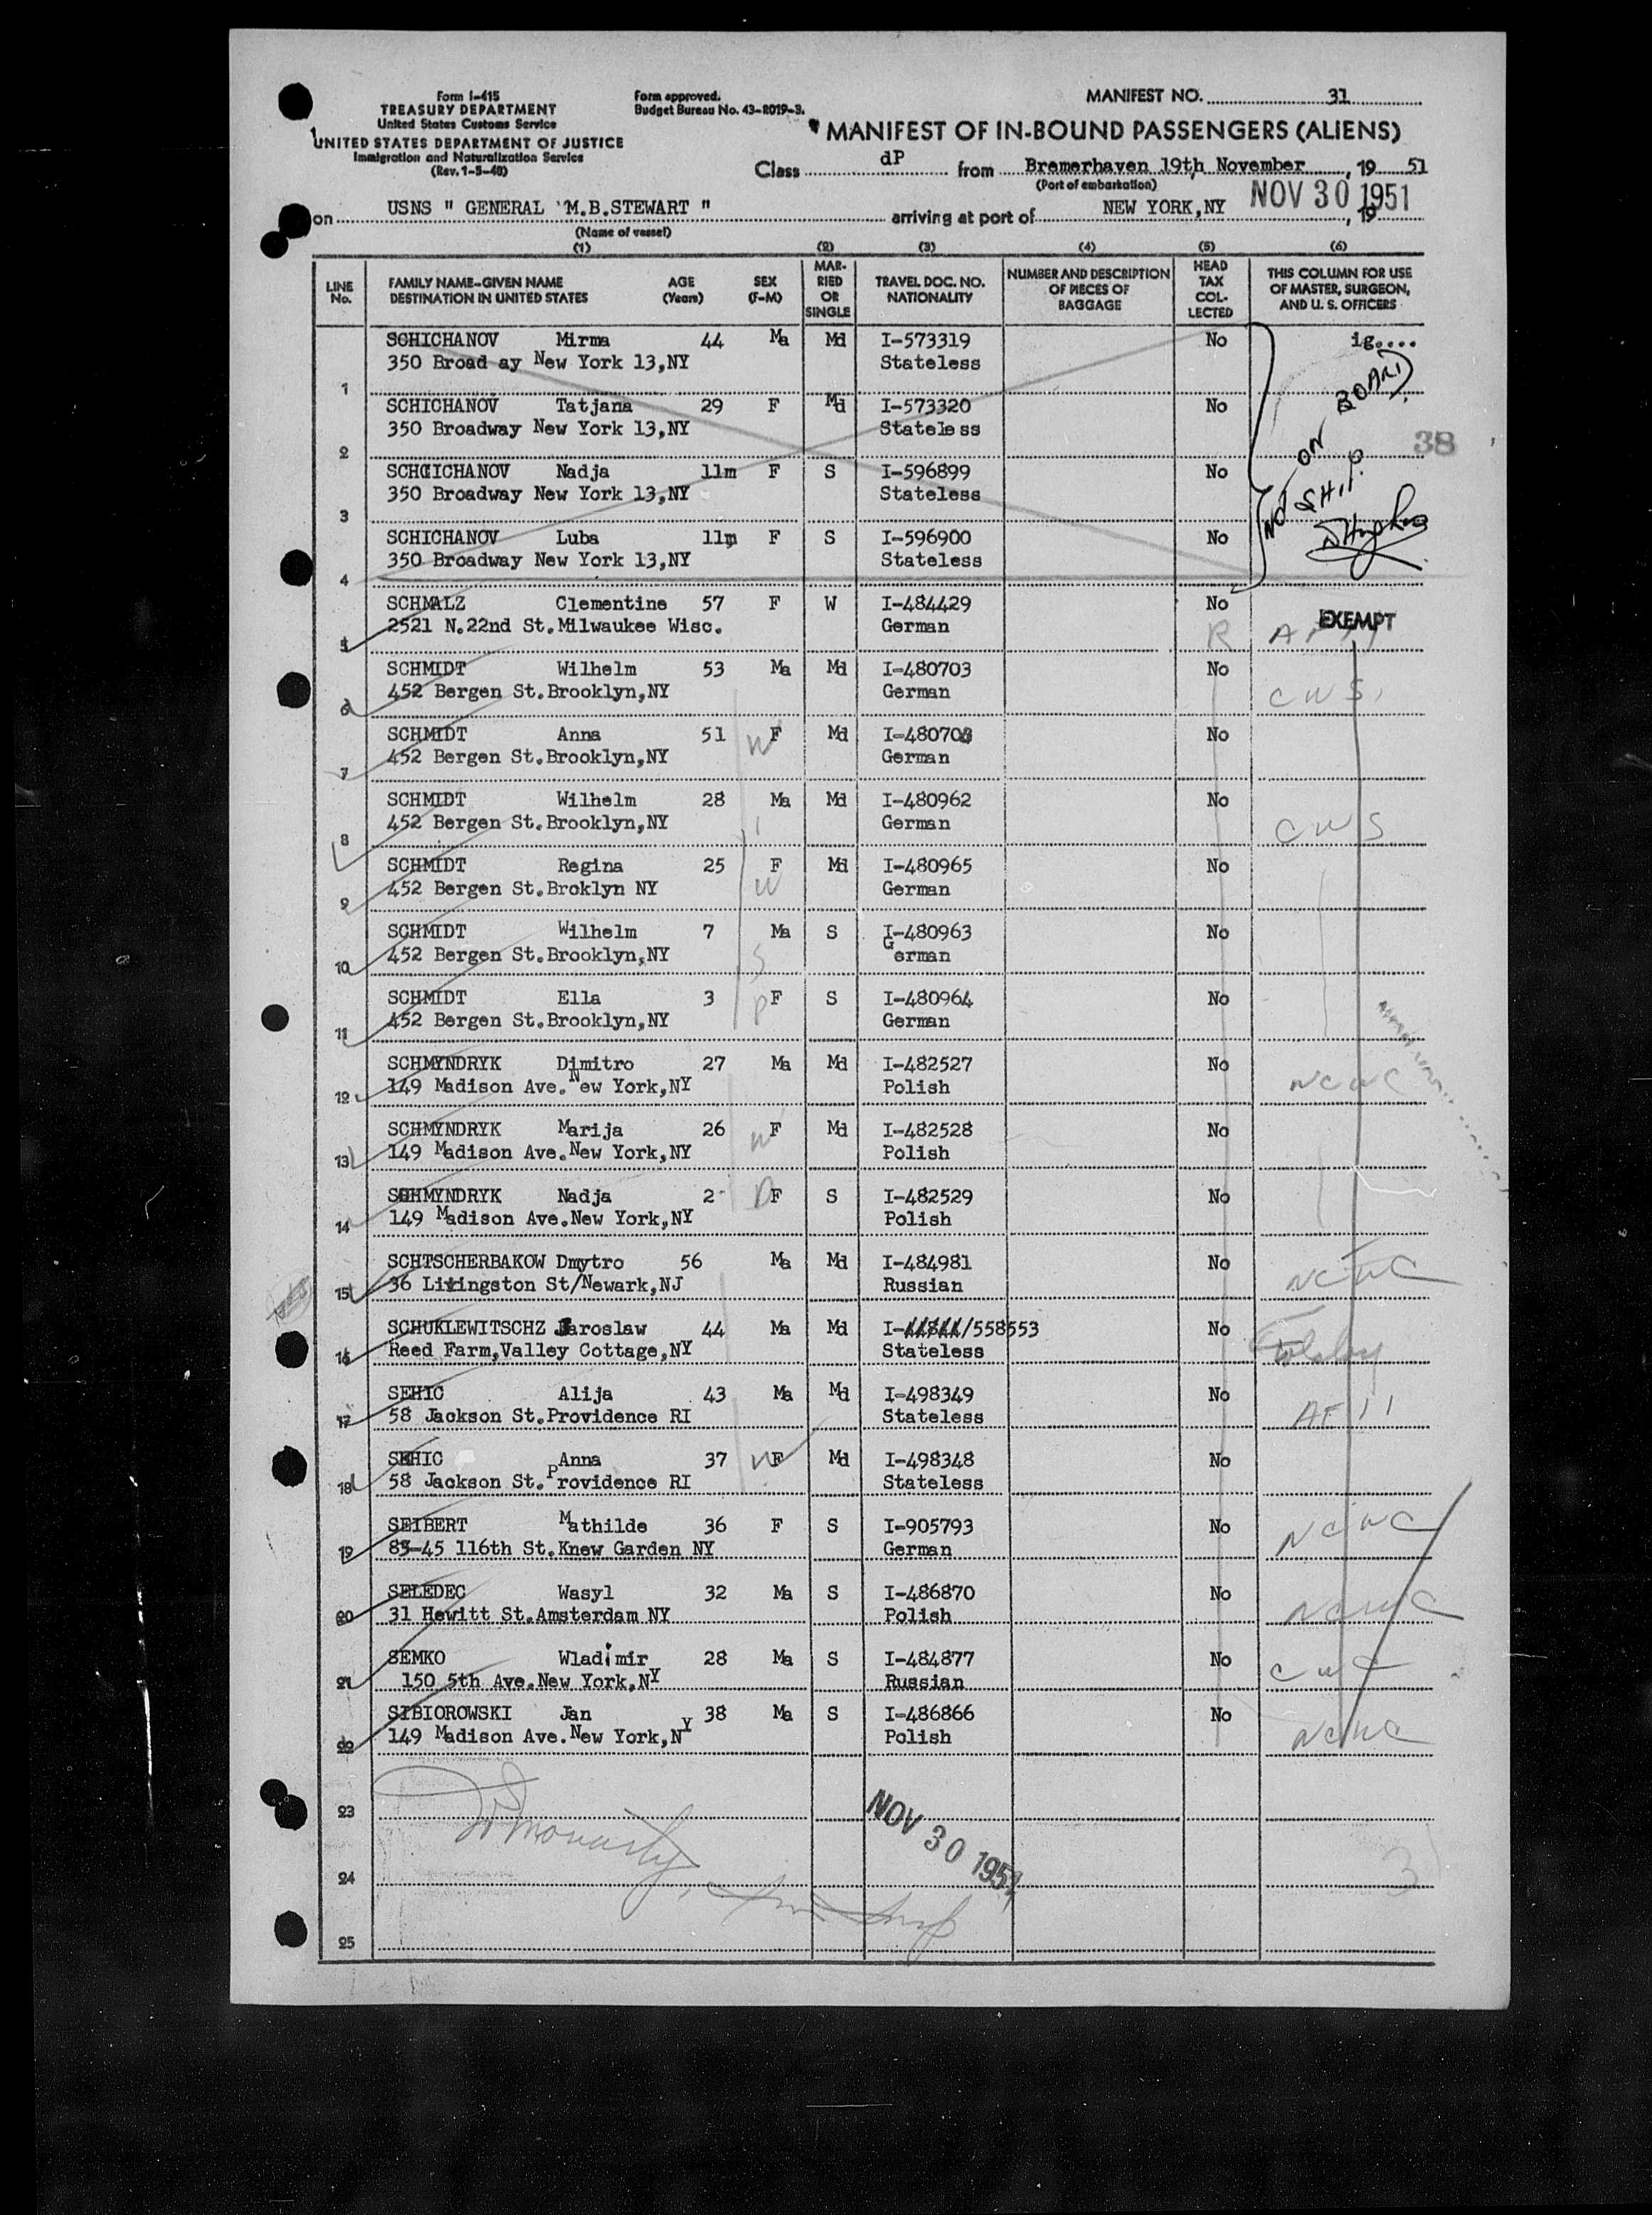 Form I-415
TREASURY DEPARTMENT
United States Customs Service
UNITED STATES DEPARTMENT OF JUSTICE
Immigration and Naturalization Service
(Rev. 1-5-48)
Form approved.
Budget Bureau No. 43-R019-3.
MANIFEST NO. 31
MANIFEST OF IN-BOUND PASSENGERS (ALIENS)
Class dP from Bremerhaven 19th November, 19 51
(Port of embarkation)
on USNS " GENERAL M.B.STEWART " arriving at port of NEW YORK,NY NOV 30 1951, 19
(Name of vessel)
(1) (2) (3) (4) (5) (6)
LINE No. FAMILY NAME-GIVEN NAME DESTINATION IN UNITED STATES AGE (Years) SEX (F-M) MARRIED OR SINGLE TRAVEL DOC. NO. NATIONALITY NUMBER AND DESCRIPTION OF PIECES OF BAGGAGE HEAD TAX COLLECTED THIS COLUMN FOR USE OF MASTER, SURGEON, AND U. S. OFFICERS
SCHICHANOV Mirma 44 Ma Md I-573319 No ig....
350 Broad ay New York 13,NY Stateless
1
SCHICHANOV Tatjana 29 F Md I-573320 No
350 Broadway New York 13,NY Stateless
2
NOT ON BOARD SHIP
38
SCHCICHANOV Nadja 11m F S I-596899 No
350 Broadway New York 13,NY Stateless
3
SCHICHANOV Luba 11m F S I-596900 No
350 Broadway New York 13,NY Stateless
4
SCHMALZ Clementine 57 F W I-484429 No EXEMPT
2521 N.22nd St.Milwaukee Wisc. German R
5
SCHMIDT Wilhelm 53 Ma Md I-480703 No
452 Bergen St.Brooklyn,NY German CWS
6
SCHMIDT Anna 51 W F Md I-480708 No
452 Bergen St.Brooklyn,NY German
7
SCHMIDT Wilhelm 28 Ma Md I-480962 No
452 Bergen St.Brooklyn,NY German CWS
8
SCHMIDT Regina 25 F Md I-480965 No
452 Bergen St.Broklyn NY W German
9
SCHMIDT Wilhelm 7 Ma S I-480963 No
452 Bergen St.Brooklyn,NY S German
10
SCHMIDT Ella 3 F S I-480964 No
452 Bergen St.Brooklyn,NY German
11
SCHMYNDRYK Dimitro 27 Ma Md I-482527 No
149 Madison Ave.New York,NY Polish NCWC
12
SCHMYNDRYK Marija 26 W F Md I-482528 No
149 Madison Ave.New York,NY Polish
13
SCHMYNDRYK Nadja 2 D F S I-482529 No
149 Madison Ave.New York,NY Polish
14
SCHTSCHERBAKOW Dmytro 56 Ma Md I-484981 No
36 Livingston St/Newark,NJ Russian NCWC
15
SCHUKLEWITSCHZ Jaroslaw 44 Ma Md I-/558553 No
Reed Farm,Valley Cottage,NY Stateless Tolstoy
16
SEHIC Alija 43 Ma Md I-498349 No
58 Jackson St.Providence RI Stateless AF
17
SEHIC Anna 37 W F Md I-498348 No
58 Jackson St.Providence RI Stateless
18
SEIBERT Mathilde 36 F S I-905793 No
83-45 116th St.Knew Garden NY German NCWC
19
SELEDEC Wasyl 32 Ma S I-486870 No
31 Hewitt St.Amsterdam NY Polish NCWC
20
SEMKO Wladimir 28 Ma S I-484877 No
150 5th Ave.New York,NY Russian
21
SIBIOROWSKI Jan 38 Ma S I-486866 No
149 Madison Ave.New York,NY Polish NCWC
22
23
NOV 30 1951
24
3
25